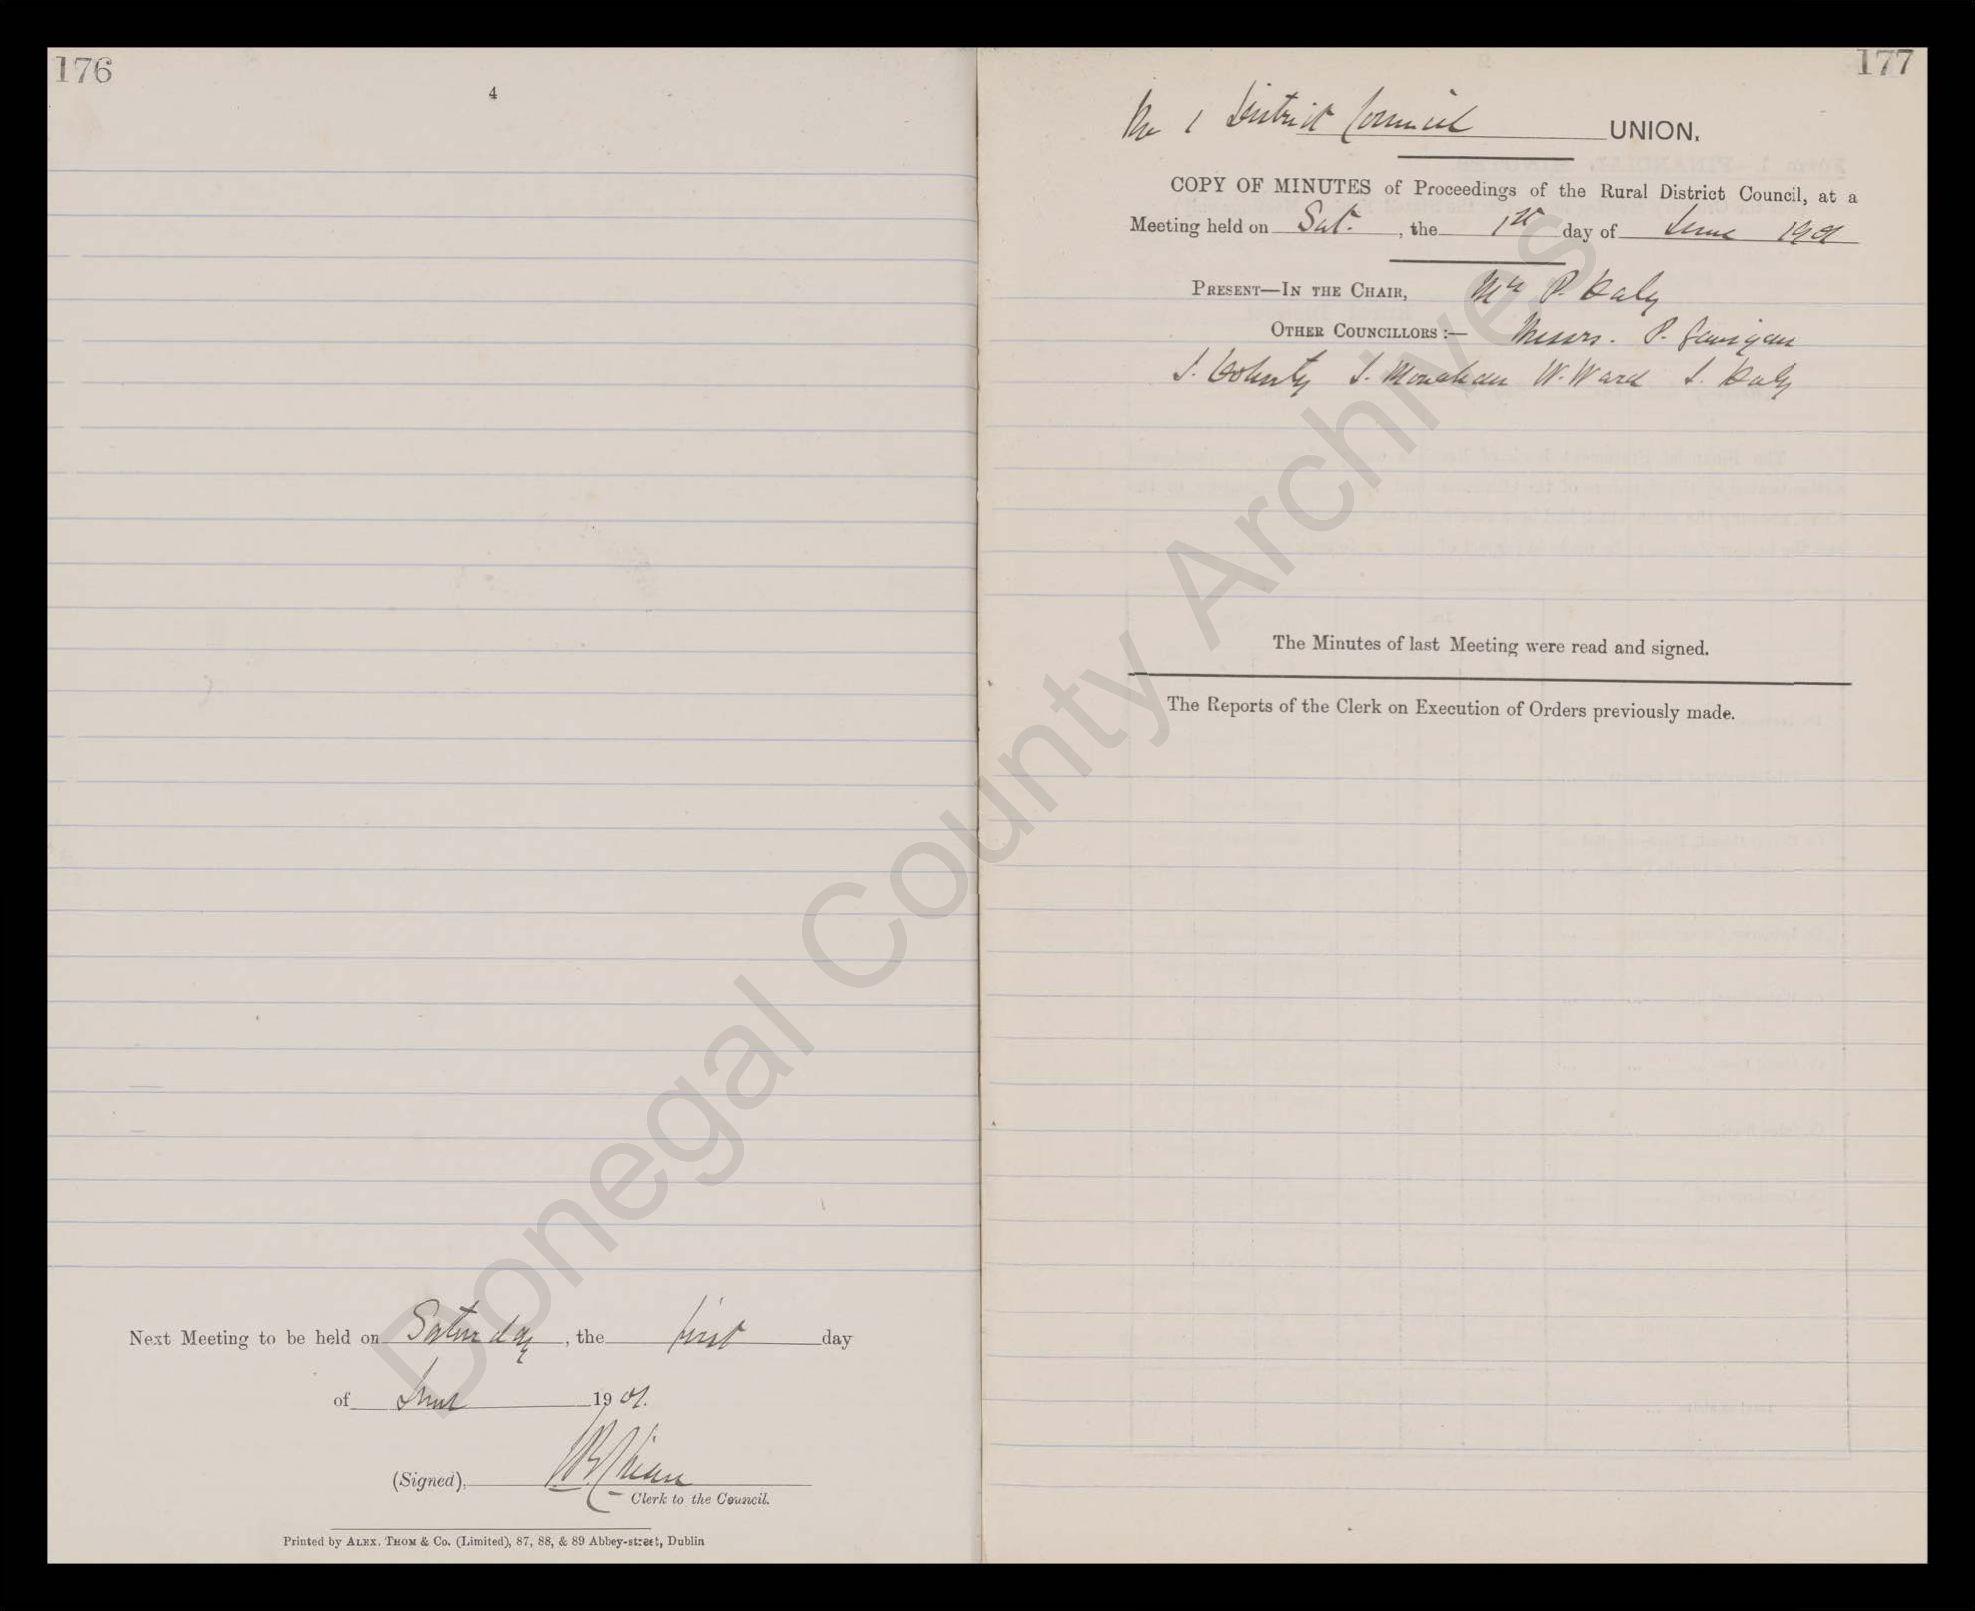 176
4
Next Meeting to be held on Saturday, the first day
of June 1901.
(Signed),
Clerk to the Council.
Printed by ALEX. THOM & Co. (Limited), 87, 88, & 89 Abbey-street, Dublin
177
No 1 District Council UNION.
COPY OF MINUTES of Proceedings of the Rural District Council, at a
Meeting held on Sat., the 1st day of June 1901
PRESENT—IN THE CHAIR, Mr P. Daly
OTHER COUNCILLORS :— Messrs. P. Gavigan
J. Doherty J. Monahan W. Ward J. Daly
The Minutes of last Meeting were read and signed.
The Reports of the Clerk on Execution of Orders previously made.
Donegal County Archives